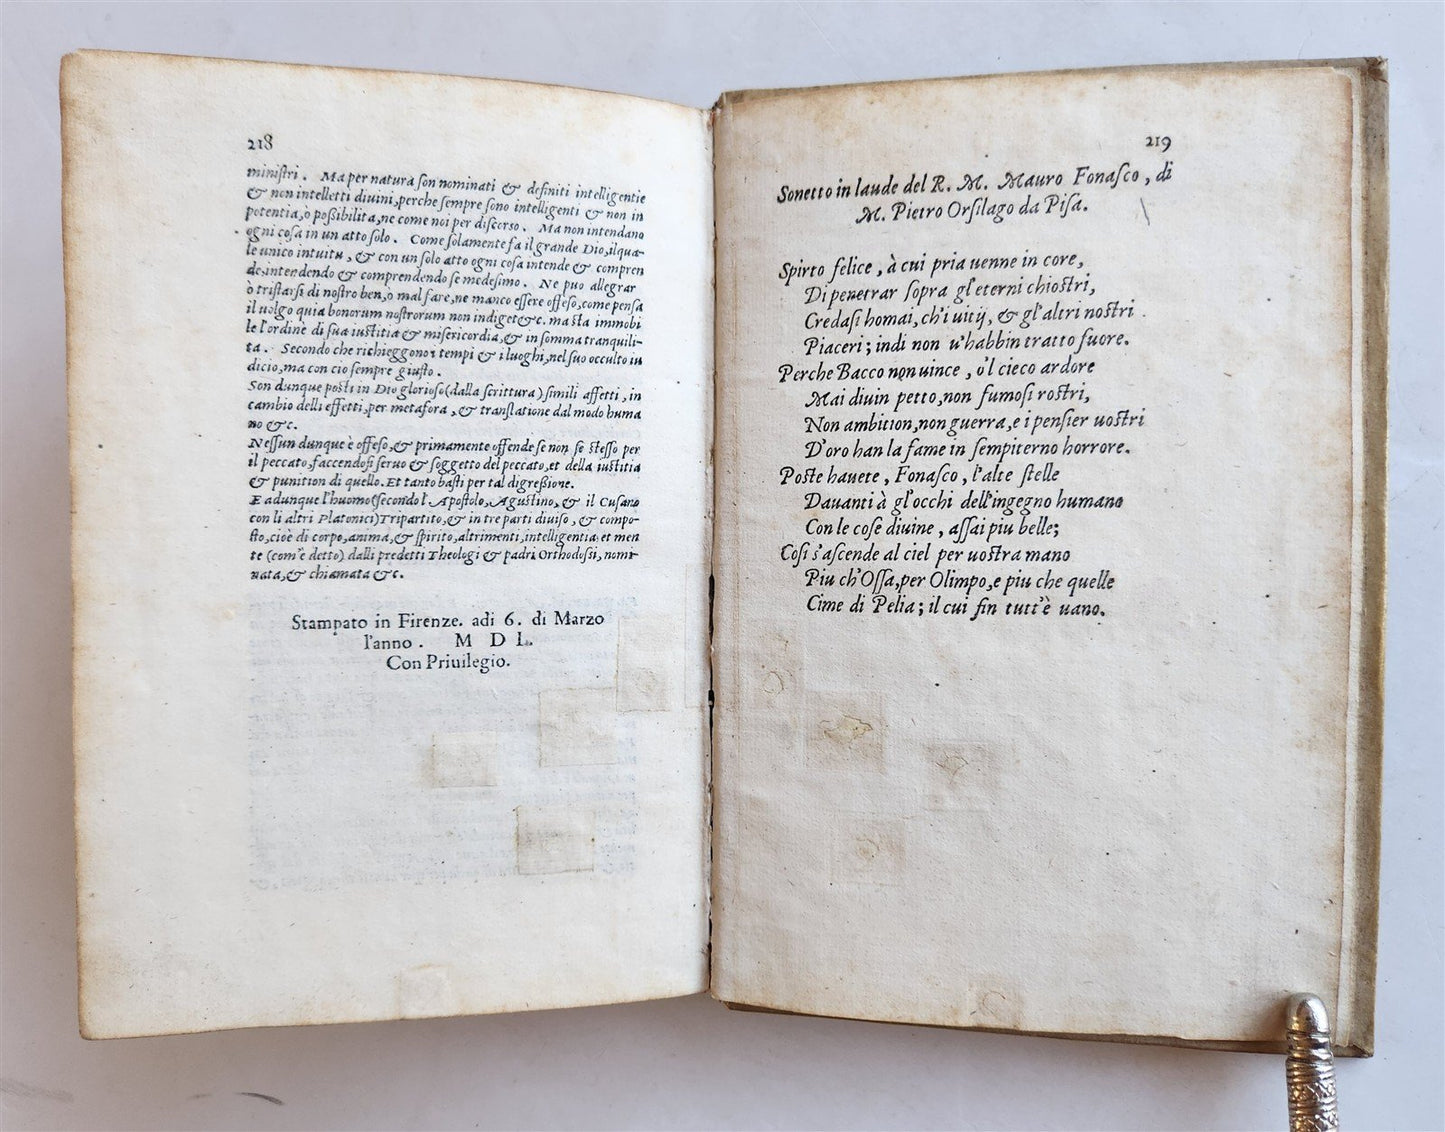 218
ministri. Ma per natura son nominati & definiti intelligentie
& non intelletti divini, perche sempre sono intelligenti & non in
potentia, ò possibilita, ne come noi per discorso. Ma non intendano
ogni cosa in un atto solo. Come solamente fa il grande Dio, ilqua-
le unico intuitu, & con un solo atto ogni cosa intende & compren
de, intendendo & comprendendo se medesimo. Ne puo allegrar
ò tristarsi di nostro ben, o mal fare, ne manco essere offeso, come pensa
il uolgo quia bonorum nostrorum non indiget &c. ma sta immobi
le l'ordine di sua iustitia & misericordia, & in somma tranquili-
ta. Secondo che richieggono i tempi & i luoghi, nel suo occulto iu
dicio, ma con cio sempre giusto.
Son dunque posti in Dio glorioso (dalla scrittura) simili affetti, in
cambio delli effetti, per metafora, & translatione dal modo huma
no &c.
Nessun dunque è offeso, & primamente offende se non se stesso per
il peccato, faccendosi seruo & soggetto del peccato, et della iustitia
& punition di quello. Et tanto basti per tal digressione.
E adunque l'huomo (secondo l'Apostolo, Agustino, & il Cusano
con li altri Platonici) Tripartito, & in tre parti diuiso, & compo-
sto, cioè di corpo, anima, & spirito, altrimenti, intelligentia et men
te (com'è detto) dalli predetti Theologi & padri Orthodossi, nomi
nata, & chiamata &c.
Stampato in Firenze. adi 6. di Marzo
l'anno. M D L.
Con Priuilegio.
219
Sonetto in laude del R. M. Mauro Fonasco, di
M. Pietro Orsilago da Pisa.
Spirto felice, à cui pria uenne in core,
Di penetrar sopra gl'eterni chiostri,
Credasi homai, ch'i uitij, & gl'altri nostri
Piaceri; indi non u'habbin tratto fuore.
Perche Bacco non uince, o'l cieco ardore
Mai diuin petto, non fumosi rostri,
Non ambition, non guerra, e i pensier uostri
D'oro han la fame in sempiterno horrore.
Poste hauete, Fonasco, l'alte stelle
Dauanti à gl'occhi dell'ingegno humano
Con le cose diuine, assai piu belle;
Cosi s'ascende al ciel per uostra mano
Piu ch'Ossa, per Olimpo, e piu che quelle
Cime di Pelia; il cui fin tutt'è uano.